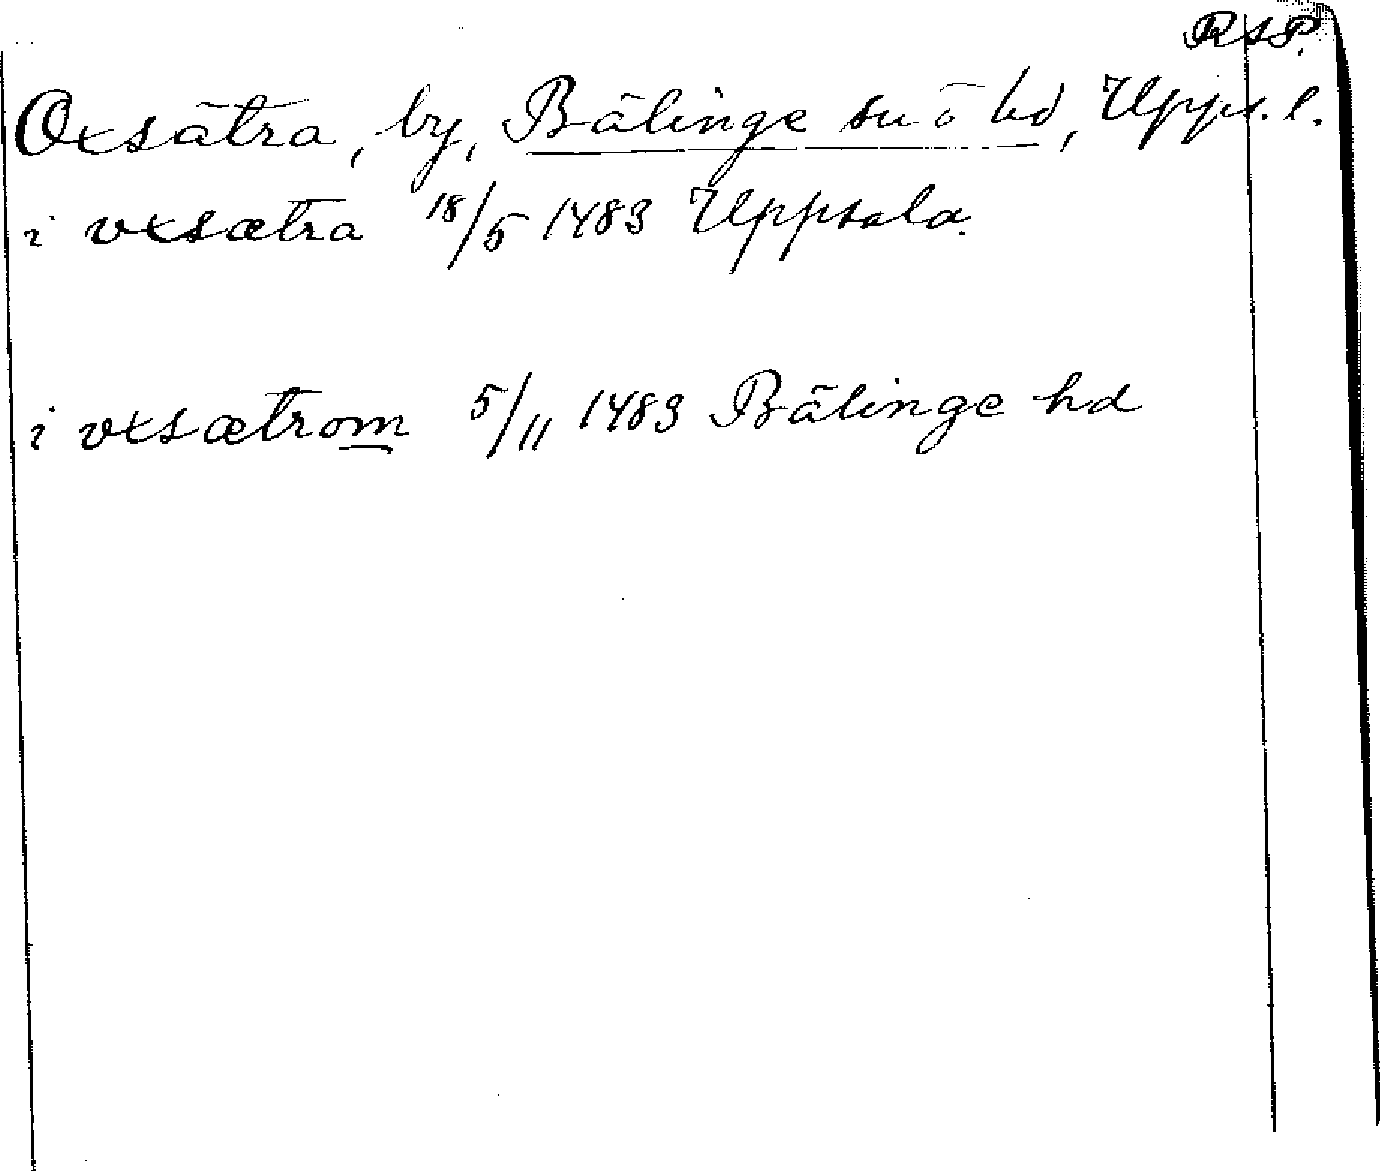 RAP.
Oxsätra, by, Bälinge sn o hd, Upps. l.
i vxsætra 18/5 1483 Uppsala.
i vxsætrom 5/11 1483 Bälinge hd